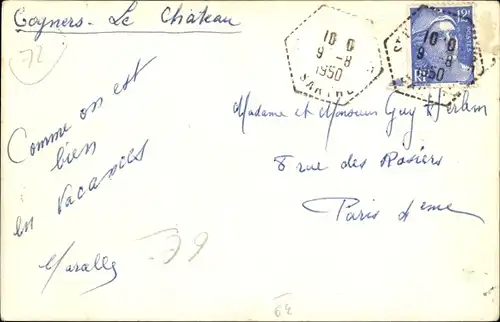 Cogners - Le Château
72
10 0
9 - 8
1950
SARTHE
10 0
9 - 8
1950
12F
Madame et Monsieur Guy Herlin
8 rue des Rosiers
Paris 4eme
Comme on est
bien
en Vacances